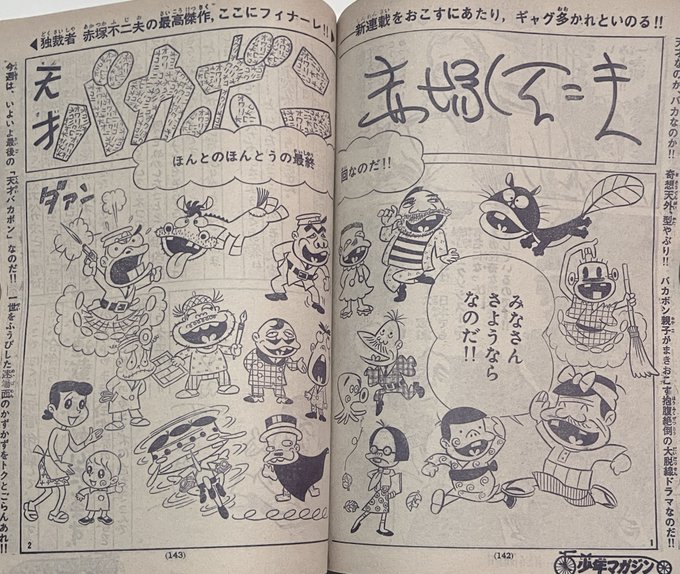 天才なのか、バカなのか!! 奇想天外、型やぶり!! バカボン親子がまきおこす抱腹絶倒の大脱線ドラマなのだ!!
新連載をおこすにあたり，ギャグ多かれといのる!!
◀独裁者 赤塚不二夫の最高傑作，ここにフィナーレ!!
天才
バカボン
赤塚不二夫
ほんとのほんとうの最終回なのだ!!
みなさん
さようなら
なのだ!!
ダァン
1
(142)
少年マガジン
2
(143)
今週は、いよいよ最後の「天才バカボン」なのだ!! 一世をふうびした迷場面のかずかずをトクとごらんあれ!!